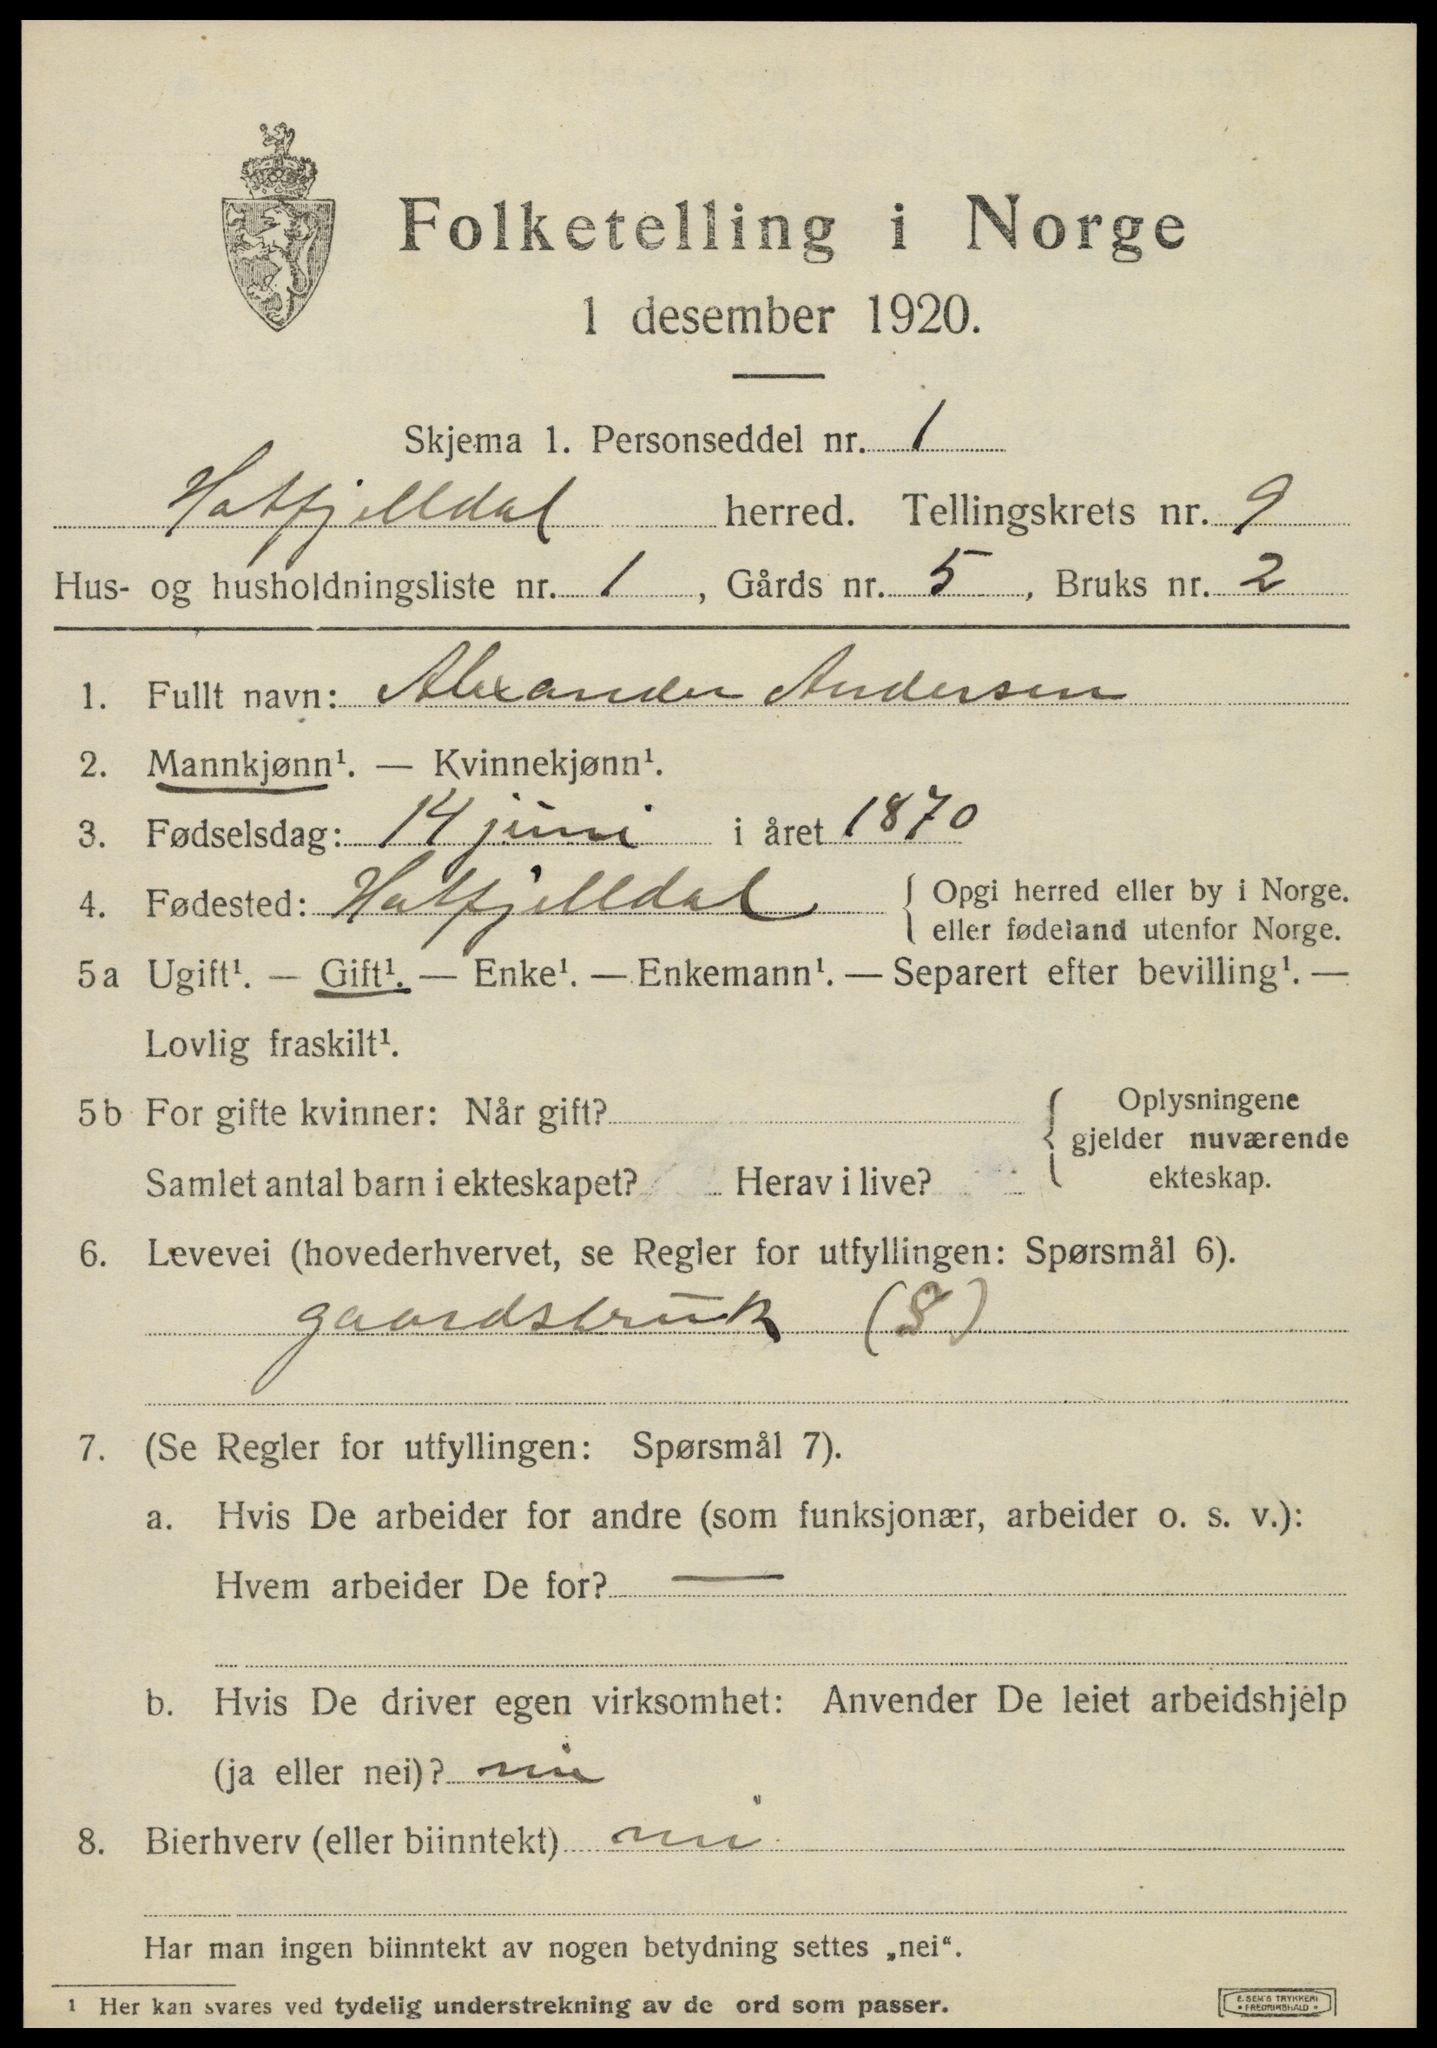 Folketelling i Norge
1 desember 1920.
Skjema 1. Personseddel nr. 1
Hatfjelldal herred. Tellingskrets nr. 9
Hus- og husholdningsliste nr. 1, Gårds nr. 5, Bruks nr. 2
1. Fullt navn: Alexander Andersen
2. Mannkjønn¹. — Kvinnekjønn¹.
3. Fødselsdag: 14 juni i året 1870
4. Fødested: Hatfjelldal { Opgi herred eller by i Norge.
eller fødeland utenfor Norge.
5a Ugift¹. — Gift¹. — Enke¹. — Enkemann¹. — Separert efter bevilling¹. —
Lovlig fraskilt¹.
5b For gifte kvinner: Når gift?
Samlet antal barn i ekteskapet? Herav i live?
{ Oplysningene
gjelder nuværende
ekteskap.
6. Levevei (hovederhvervet, se Regler for utfyllingen: Spørsmål 6).
gaardsbruk (S)
7. (Se Regler for utfyllingen: Spørsmål 7).
a. Hvis De arbeider for andre (som funksjonær, arbeider o. s. v.):
Hvem arbeider De for? —
b. Hvis De driver egen virksomhet: Anvender De leiet arbeidshjelp
(ja eller nei)? nei
8. Bierhverv (eller biinntekt) nei
Har man ingen biinntekt av nogen betydning settes „nei“.
1 Her kan svares ved tydelig understrekning av de ord som passer.
E. SEM'S TRYKKERI
• FREDRIKSHALD •